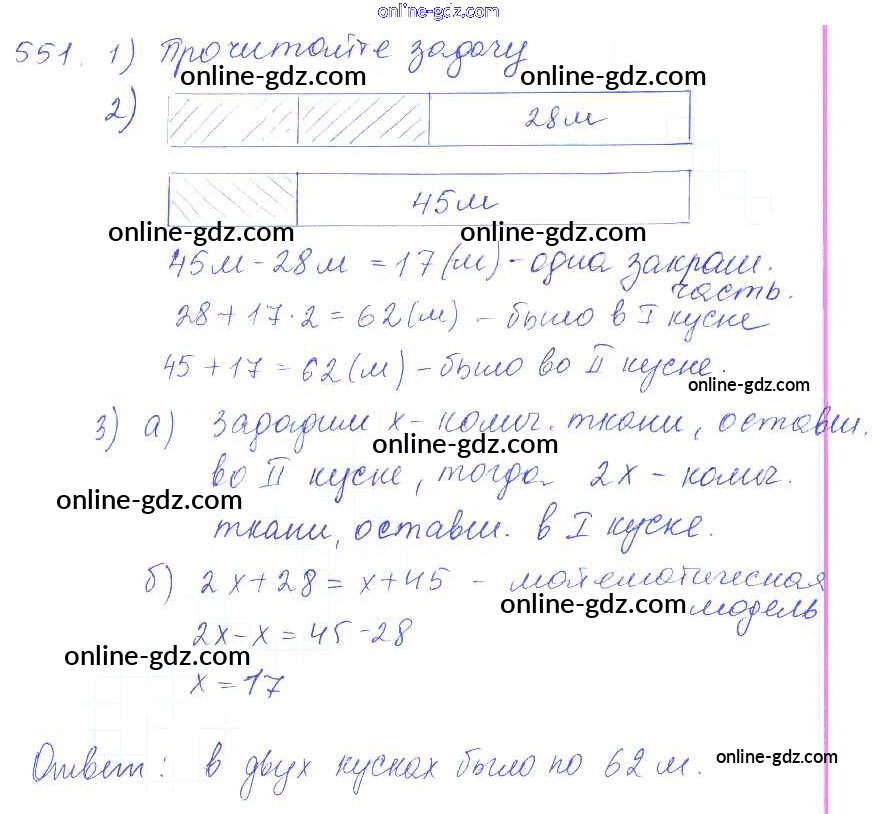 online-gdz.com
551. 1) Прочитайте задачу
online-gdz.com online-gdz.com
2)
28м
45м
online-gdz.com online-gdz.com
45м - 28м = 17 (м) - одна закраш.
часть.
28 + 17 · 2 = 62 (м) - было в I куске
45 + 17 = 62 (м) - было во II куске.
online-gdz.com
3) а) Зададим x - колич. ткани, оставш.
online-gdz.com
во II куске, тогда 2x - колич.
online-gdz.com
ткани, оставш. в I куске.
б) 2x + 28 = x + 45 - математическая
online-gdz.com модель
2x - x = 45 - 28
online-gdz.com
x = 17
online-gdz.com
Ответ: в двух кусках было по 62 м.